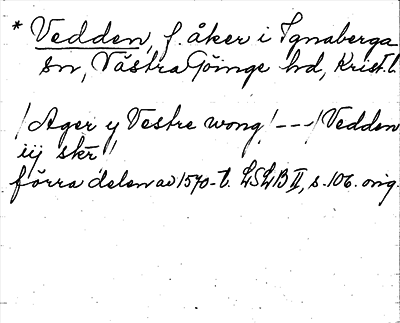 * Vedden, f. åker i Ignaberga
sn, Västra Göinge hd, Krist. l.
/Ager y Vestre wong/ --- / Vedden
iij skr̄ /
förra delen av 1570-t. LSLB II, s. 106. orig.